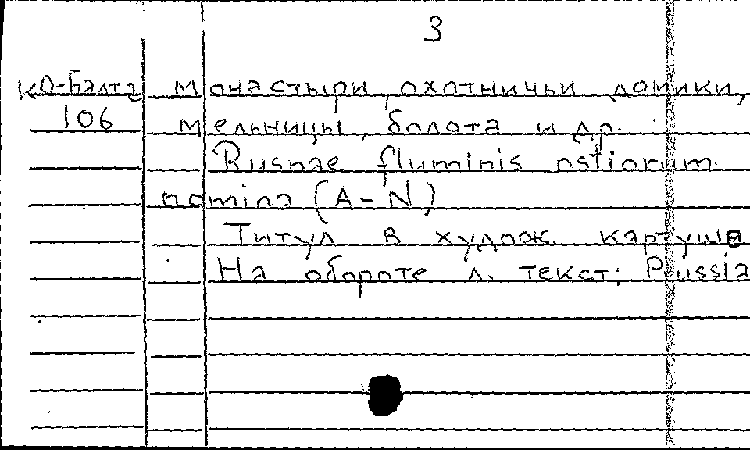 3
КО-Балта монастыри, охотничьи домики,
106 мельницы, болота и др.
Rusnae fluminis ostiorum
nomina (A-N)
Титул в худож. картуше
На обороте л. текст: Prussia